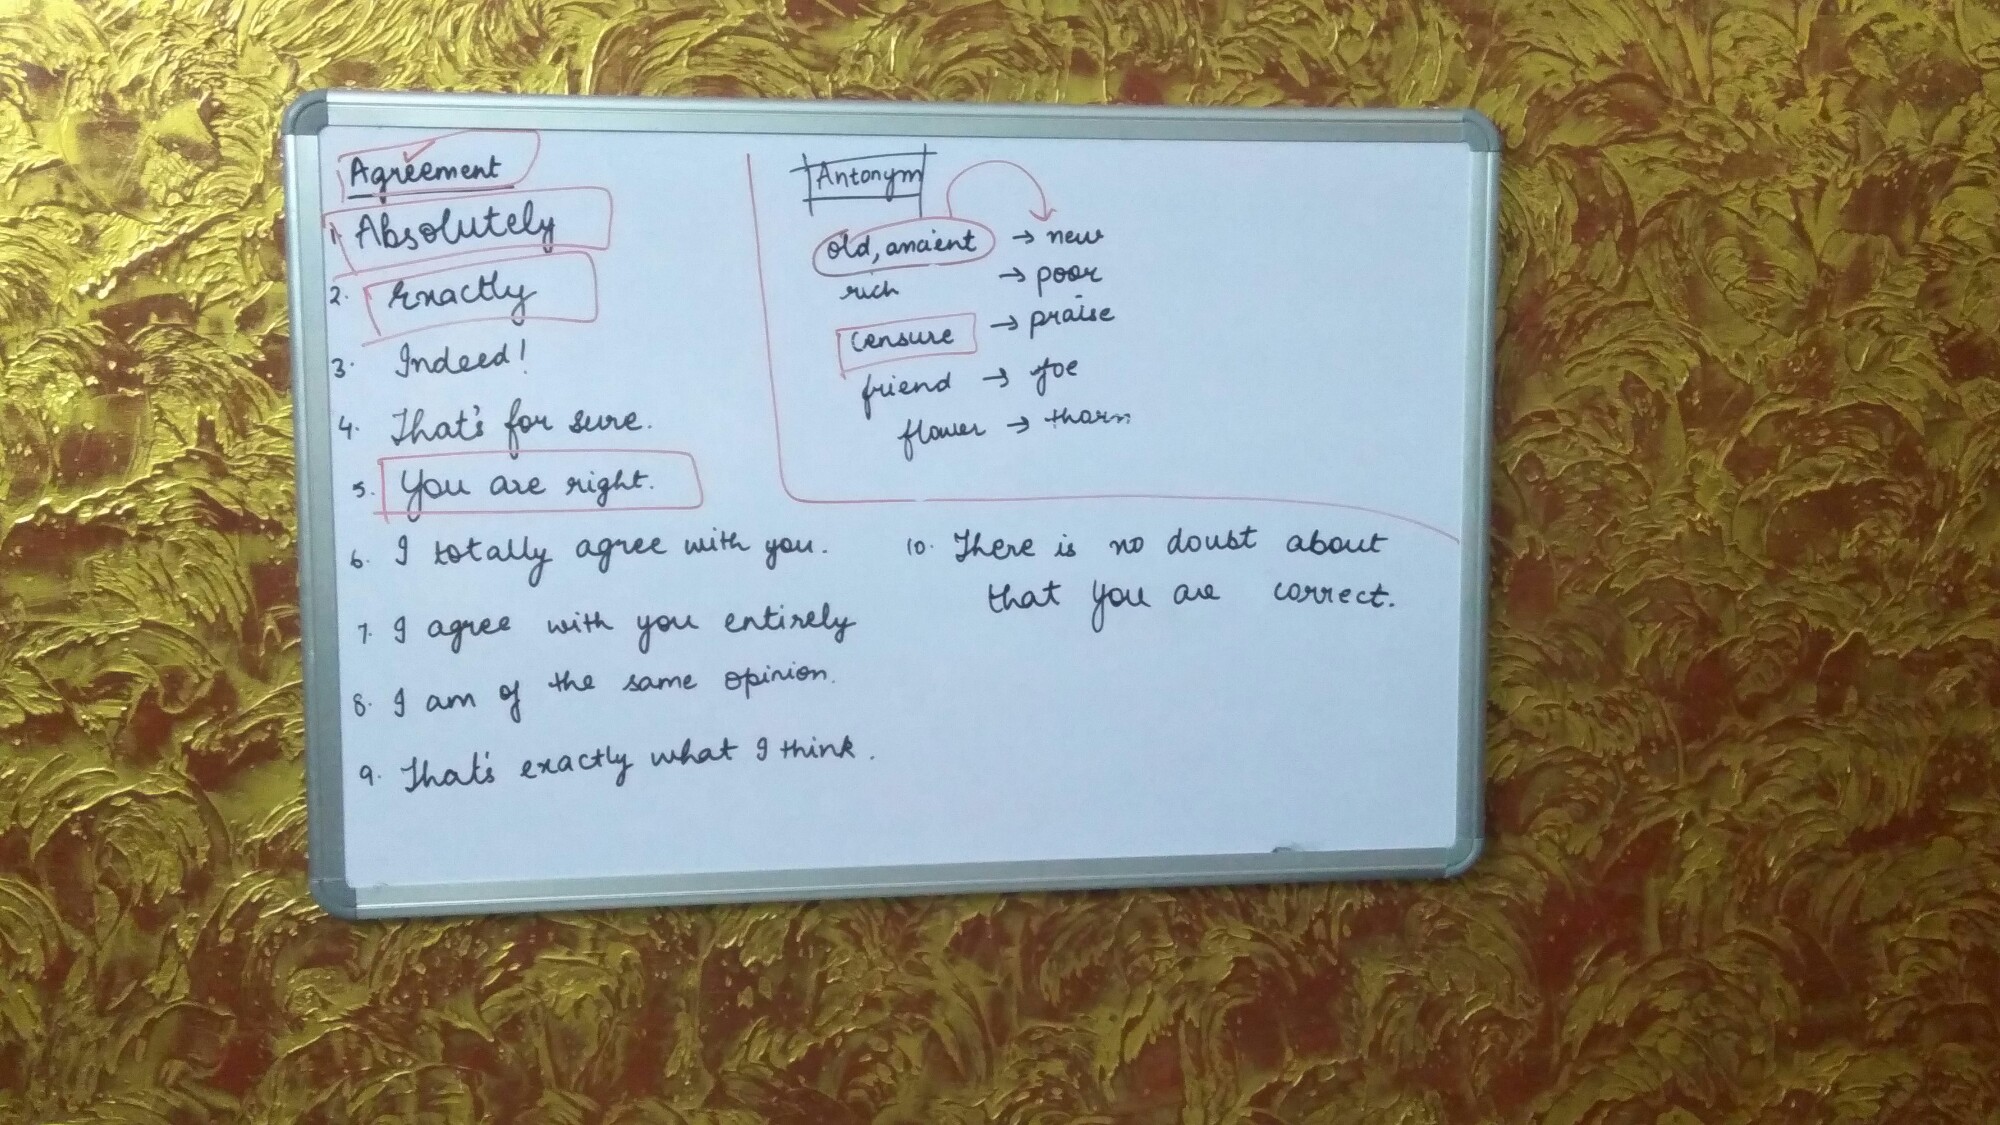 Agreement
1. Absolutely
2. Exactly
3. Indeed!
4. That's for sure.
5. You are right.
6. I totally agree with you.
7. I agree with you entirely
8. I am of the same opinion.
9. That's exactly what I think.
Antonym
old, ancient → new
rich → poor
censure → praise
friend → foe
flower → thorn
10. There is no doubt about
that you are correct.